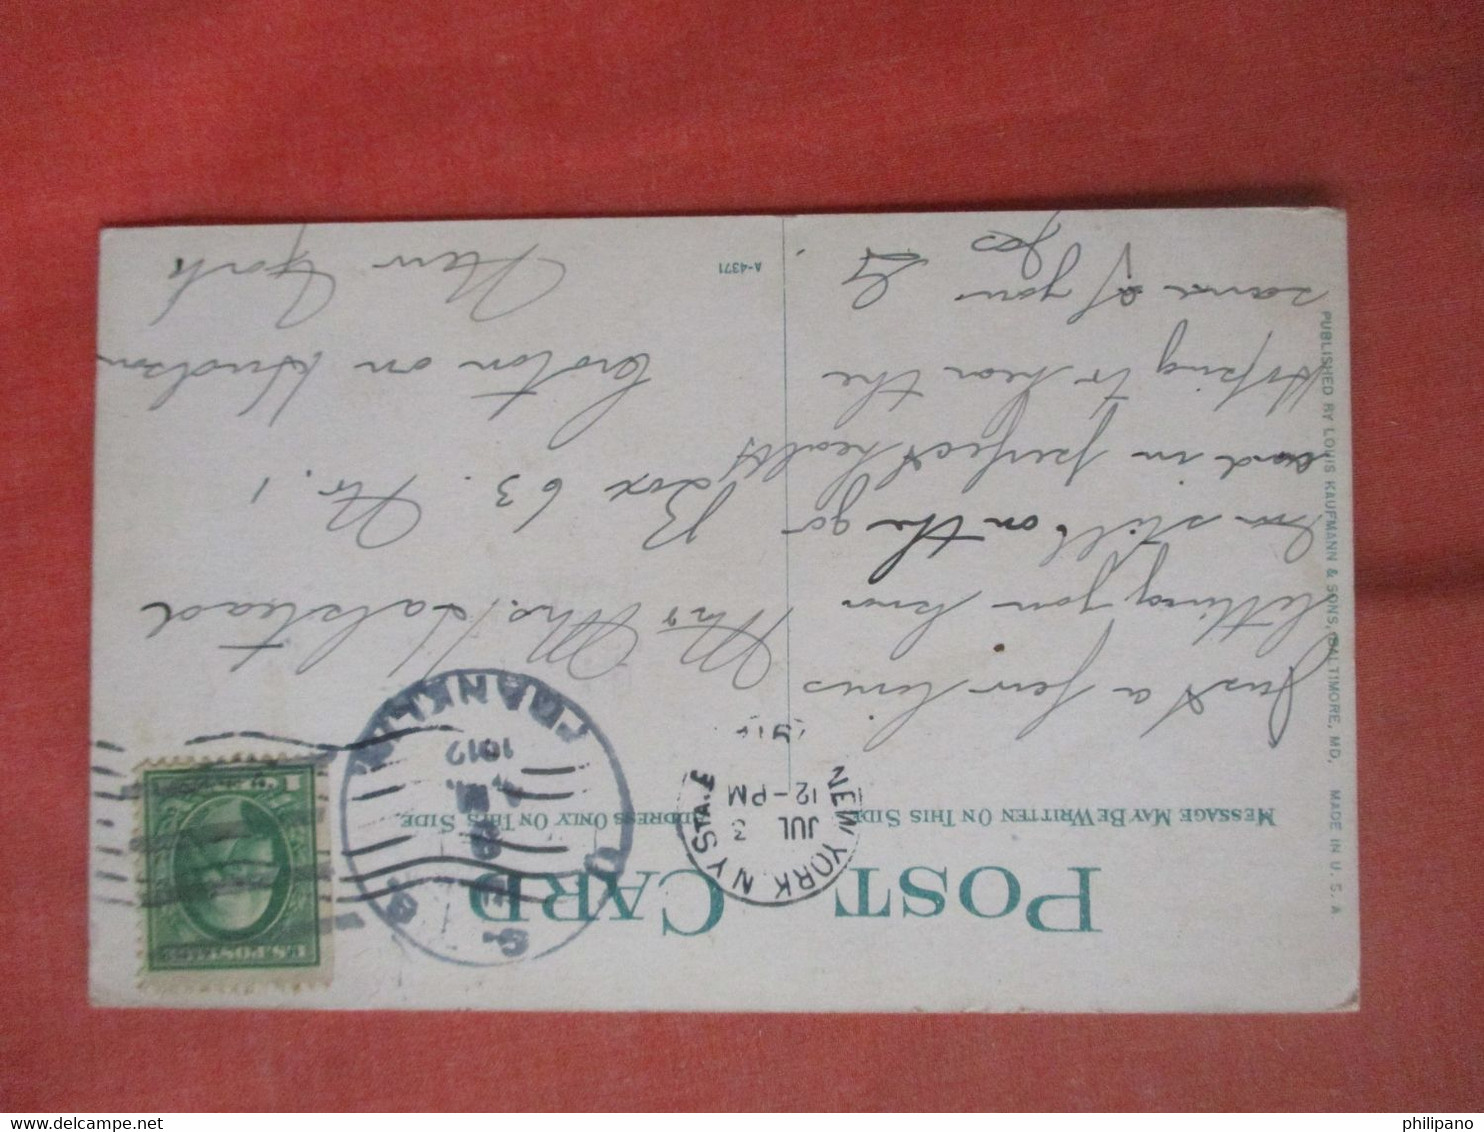 POST CARD
MESSAGE MAY BE WRITTEN ON THIS SIDE
ADDRESS ONLY ON THIS SIDE
NEW YORK N Y STA. E
JUL 3
12-PM
U.S.S. FRANKLIN
1912
U.S. POSTAGE
1
Just a few lines
letting you know
Im still on the go
and in perfect health
Hoping to hear the
same of you
Mrs Halstead
Box 63. Rr. 1
Croton on Hudson
New York
A-4371
PUBLISHED BY LOUIS KAUFMANN & SONS, BALTIMORE, MD. MADE IN U. S. A
philipano